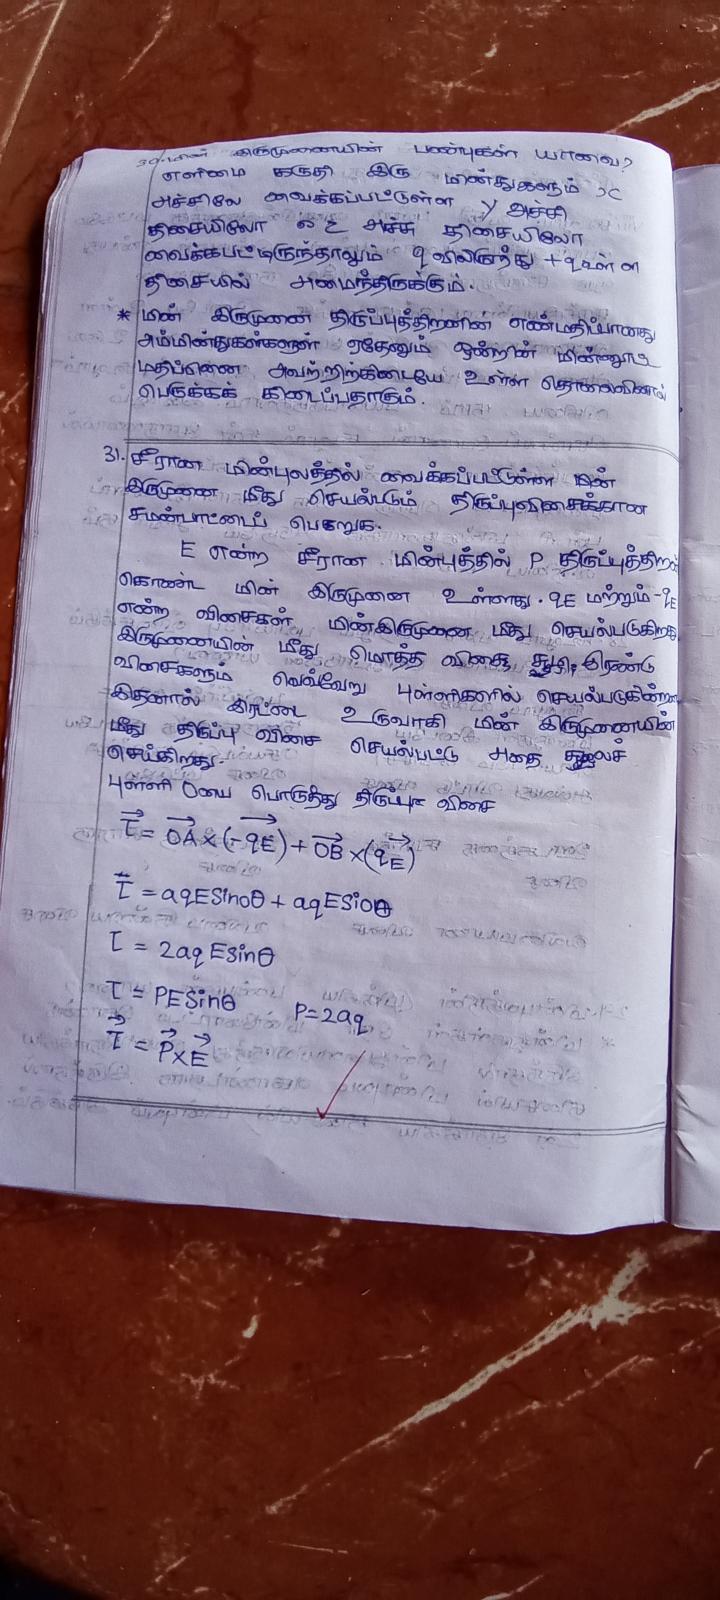 30. மின் இருமுனையின் பண்புகள் யாவை?
எளிமை கருதி இரு மின்துகளும் x
அச்சிலே வைக்கப்பட்டுள்ள y அச்சு
திசையிலோ z அச்சு திசையிலோ
வைக்கபட்டிருந்தாலும் q விலிருந்து +q உள்ள
திசையில் அமைந்திருக்கும்.
* மின் இருமுனை திருப்புத்திறனின் எண்மதிப்பானது
அம்மின்துகள்களுள் ஏதேனும் ஒன்றின் மின்னூட்ட
மதிப்பினை அவற்றிற்கிடையே உள்ள தொலைவினால்
பெருக்கக் கிடைப்பதாகும்.
31. சீரான மின்புலத்தில் வைக்கப்பட்டுள்ள மின்
இருமுனை மீது செயல்படும் திருப்புவிசைக்கான
சமன்பாட்டைப் பெறுக.
E என்ற சீரான மின்புத்தில் P திருப்புத்திறன்
கொண்ட மின் இருமுனை உள்ளது. qE மற்றும் -qE
என்ற விசைகள் மின்இருமுனை மீது செயல்படுகிறது.
இருமுனையின் மீது மொத்த விசை சுழி, இரண்டு
விசைகளும் வெவ்வேறு புள்ளிகளில் செயல்படுகின்றன
இதனால் இரட்டை உருவாகி மின் இருமுனையின்
மீது திருப்பு விசை செயல்பட்டு அதை சுழலச்
செய்கிறது.
புள்ளி Oயை பொருத்து திருப்பு விசை
τ⃗ = O⃗A × (-qE⃗) + O⃗B × (qE⃗)
τ⃗ = aqESinθ + aqESinθ
τ = 2aqEsinθ
τ = PESinθ P=2aq
τ⃗ = P⃗ × E⃗